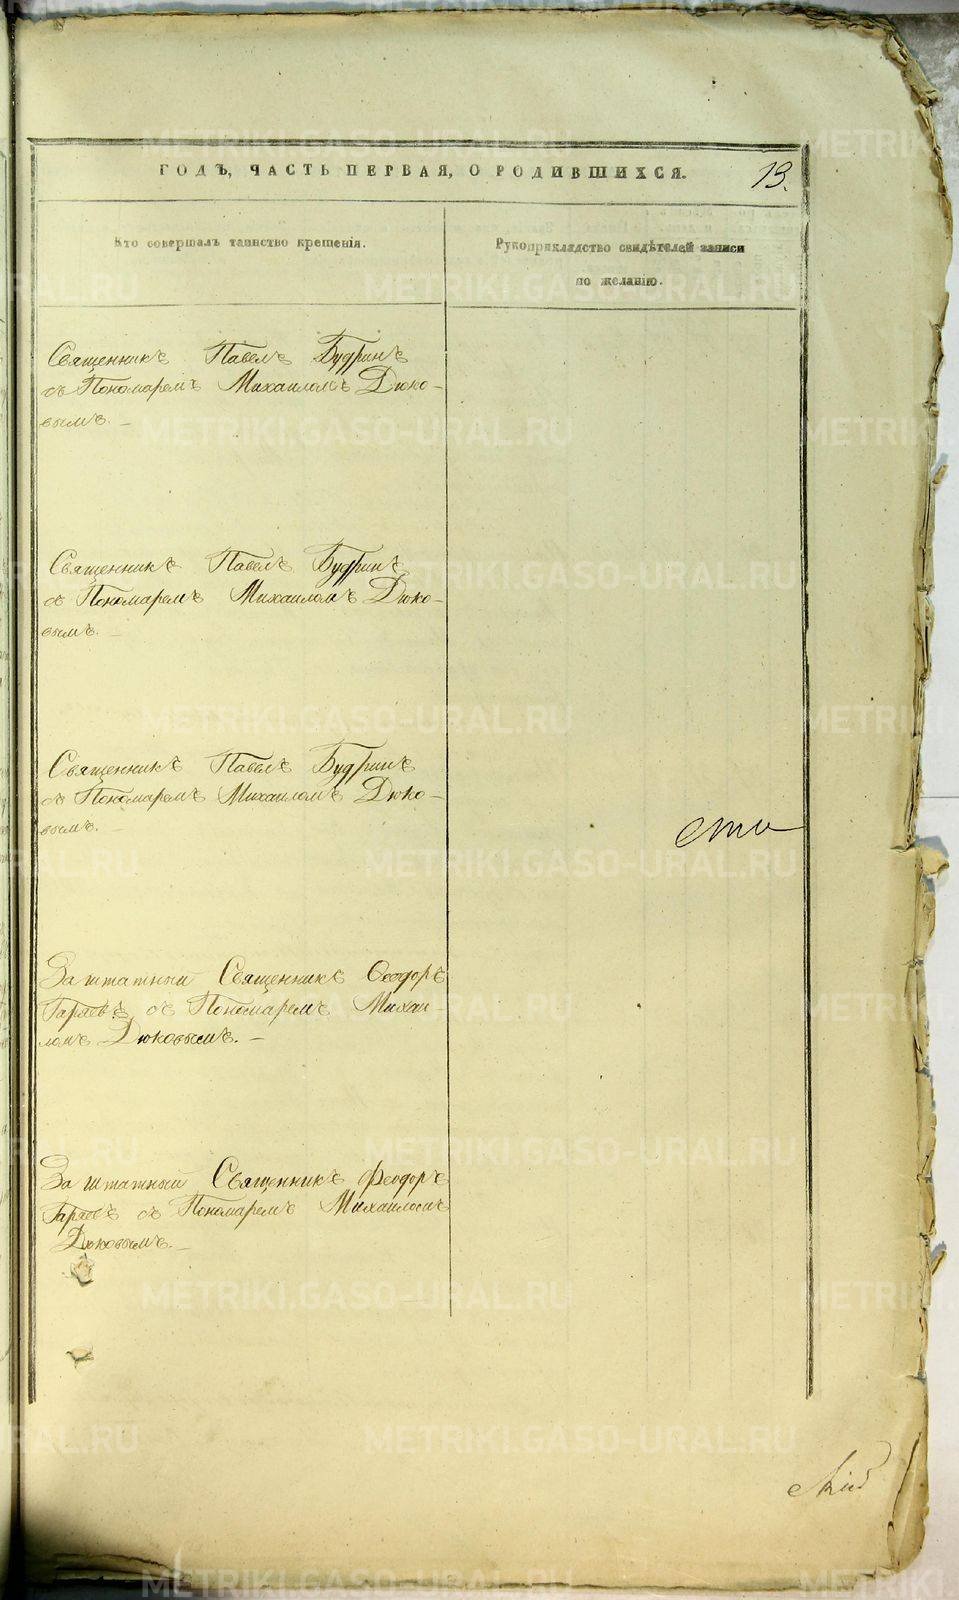 ГОДЪ, ЧАСТЬ ПЕРВАЯ, О РОДИВШИХСЯ.
13.
Кто совершалъ таинство крещенія.
Рукоприкладство свидѣтелей записи
по желанію.
Священникъ Павелъ Будринъ
съ Пономаремъ Михаиломъ Дюко-
вымъ. –
Священникъ Павелъ Будринъ
съ Пономаремъ Михаиломъ Дюко-
вымъ. –
Священникъ Павелъ Будринъ
съ Пономаремъ Михаиломъ Дюко-
вымъ. –
Заштатный Священникъ Ѳеодоръ
Гаряевъ съ Пономаремъ Михаи-
ломъ Дюковымъ. –
Заштатный Священникъ Феодоръ
Гаряевъ съ Пономаремъ Михаиломъ
Дюковымъ. –
METRIKI.GASO-URAL.RU